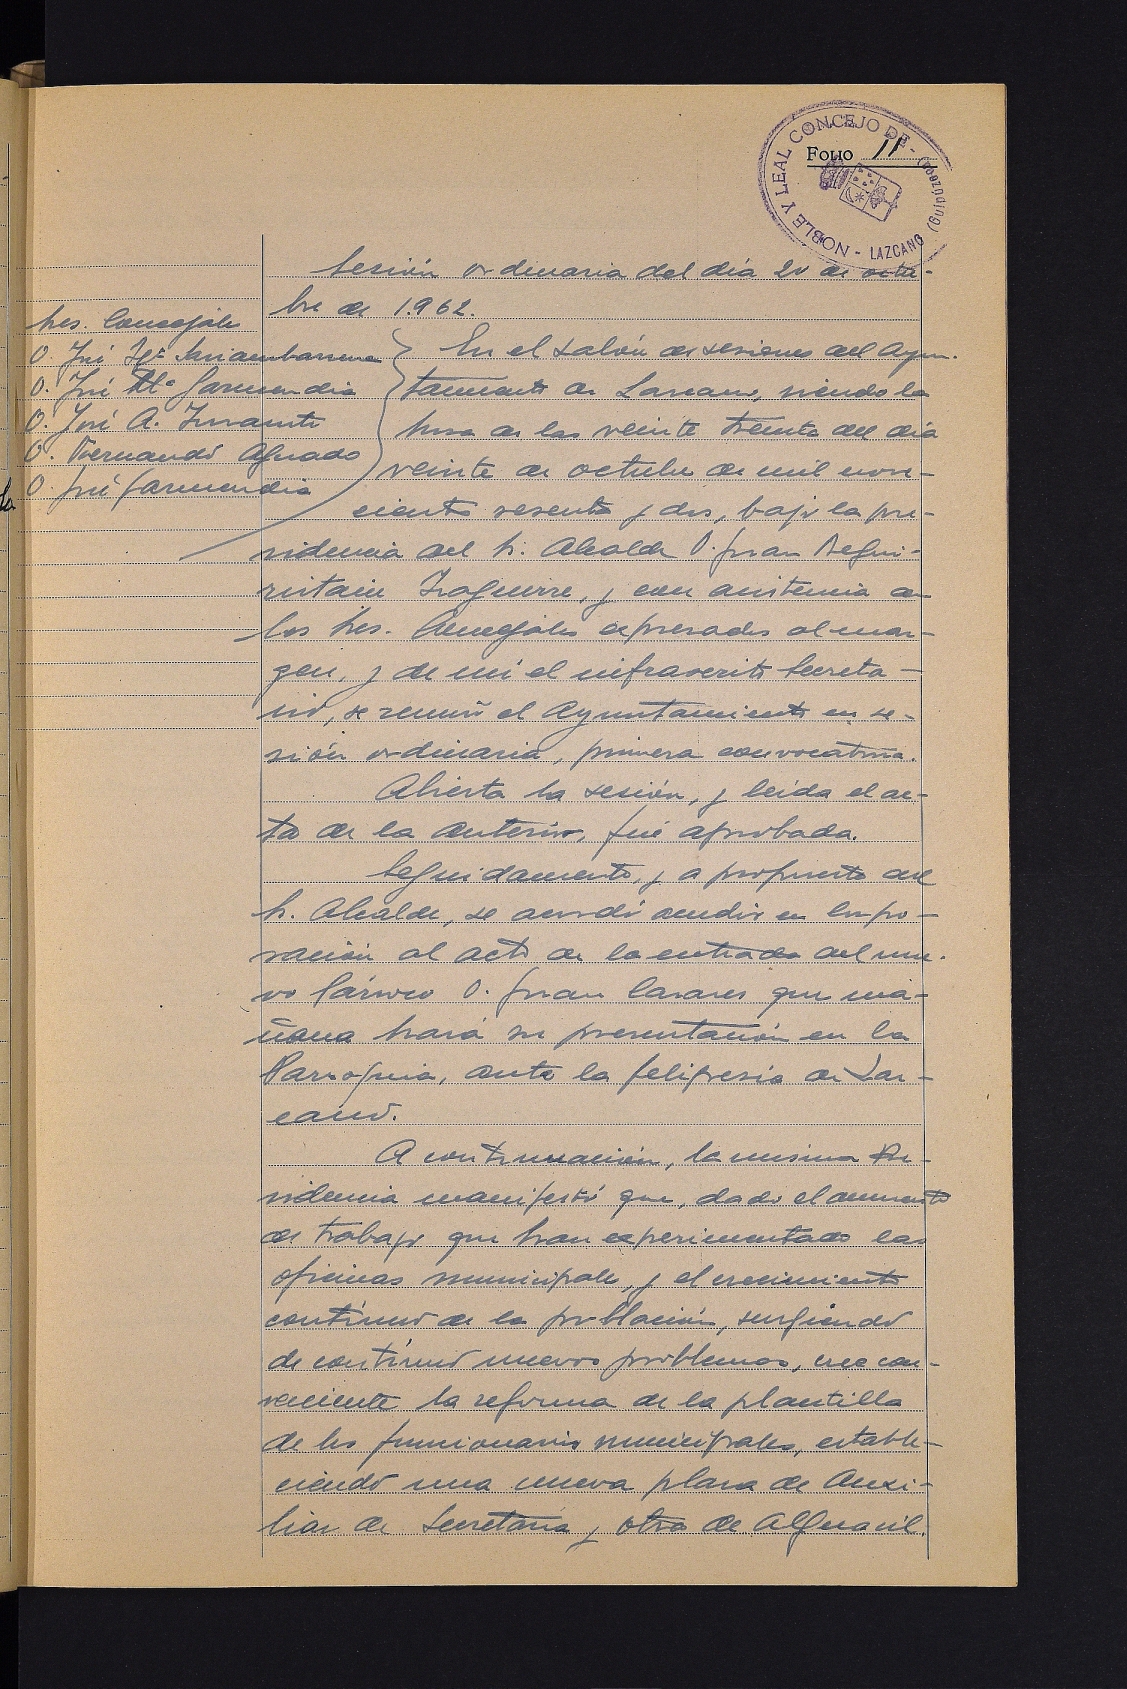 NOBLE Y LEAL CONCEJO DE - LAZCANO (Guipúzcoa)
FOLIO 11
Sesión ordinaria del día 20 de octu-
bre de 1.962.
Sres. Concejales
D. José Igº
D. José Mª Garmendia
D. José A. Insausti
D. Fernando Aguado
D. José Garmendia
En el salón de sesiones del Ayun-
tamiento de Lazcano, siendo la
hora de las veinte treinta del día
veinte de octubre de mil nove-
cientos sesenta y dos, bajo la pre-
sidencia del Sr. Alcalde D. Juan Begui-
ristain Izaguirre, y con asistencia de
los Sres. Concejales expresados al mar-
gen, y de mi el infrascrito Secreta-
rio, se reunió el Ayuntamiento en se-
sión ordinaria, primera convocatoria.
Abierta la sesión, y leída el ac-
ta de la anterior, fué aprobada.
Seguidamente, y a propuesta del
Sr. Alcalde, se acordó acudir en Corpo-
ración al acto de la entrada del nue-
vo Párroco D. Juan que ma-
ñana hará su presentación en la
Parroquia, ante la feligresía de Laz-
cano.
A continuación, la misma Pre-
sidencia manifestó que, dado el aumento
de trabajo que han experimentado las
oficinas municipales, y el crecimiento
contínuo de la población, surgiendo
de contínuo nuevos problemas, cree con-
veniente la reforma de la plantilla
de los funcionarios municipales, estable-
ciendo una nueva plaza de Auxi-
liar de Secretaría y otra de Alguacil.